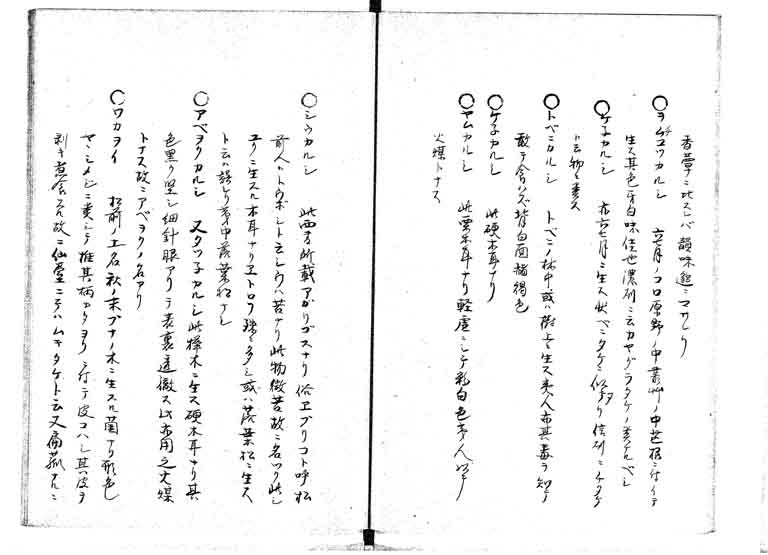 香蕈ニ比スレバ韻味遙ニマサレリ
○ヲムチユウカルシ 六七月ノコロ原野ノ中叢艸ノ中芝根ニ付イテ
生ス其色白味佳也濃州ニ云カヤ
○ケネカルシ 亦六七月ニ生ス状ベニタケニ似タリ信州ニ
ト云物ノ類
○トベニカルシ トベニノ林中或ハ樹上ニ生ス夷人亦其毒ヲ知テ
敢テ食ハズ背白面赭褐色
○ケネカルシ 此硬木耳ナリ
○ヤムカルシ 此雲木耳ナリ軽虚ニシテ乳白色夷人以テ
火煤トナス
○シウカルシ 此西方所載アガリゴスナリ俗エブリコト呼松
前人ハトウボシト云シウハ苦ナリ此物微苦故ニ名ツク此シ
ユリニ生スル木耳ナリエトロフ殊ニ多シ或ハ落葉松ニ生ス
ト云ハ誤レリ夷中落葉松ナシ
○アベヲツカルシ 又クツネカルシ此樺木ニ生ス硬木耳ナリ其
色黒ク堅シ細針眼アリテ表裏透徹ス此亦用之火煤
トナス故ニアベヲクノ名アリ
○ワカヲイ 松前ノ土名秋ノ末ブナノ木ニ生スル菌ナリ形色
ヤマシメジニ類シテ推其柄カタヨリニ付テ皮コハシ其皮ヲ
剥キ煮食フ故ニ仙臺ニテハムキタケト云又扁菰アルニ